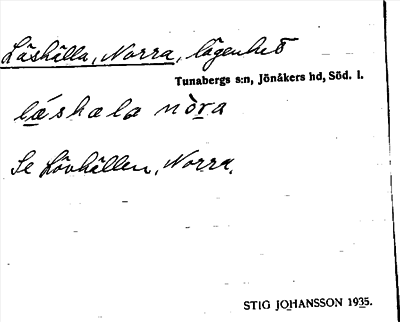 Läshälla, Norra, lägenhet
Tunabergs s:n, Jönåkers hd, Söd. l.
lǽshala nòra
Se Lövhällen, Norra.
STIG JOHANSSON 1935.